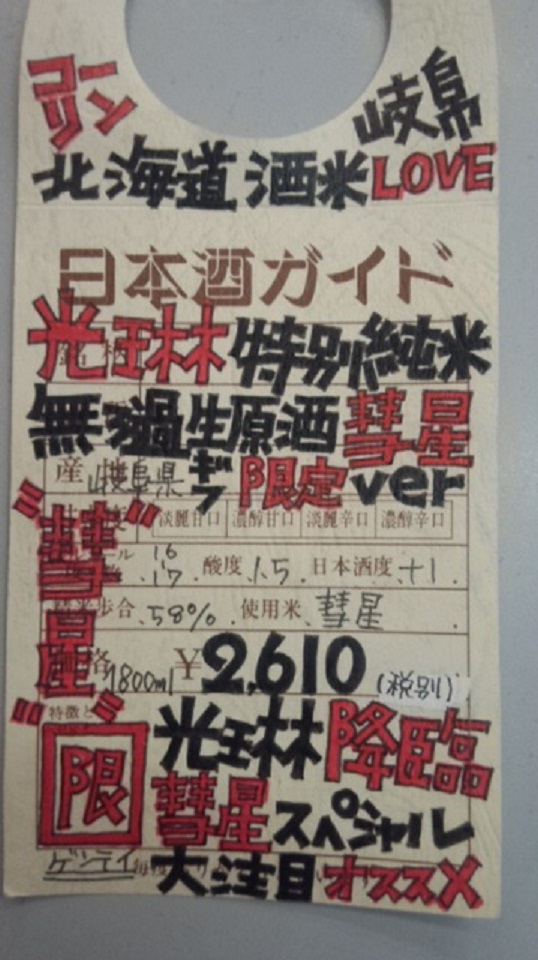 コーリン 岐阜
北海道 酒米 LOVE
日本酒ガイド
光琳 特別純米
無濾過生原酒 彗星
産地 岐阜県 ギフ 限定 ver
淡麗甘口 濃醇甘口 淡麗辛口 濃醇辛口
16
17 酸度 1.5 日本酒度 +1
歩合 58% 使用米 彗星
"彗星"
1800ml ¥2,610 (税別)
特徴と
限 光琳 降臨
彗星 スペシャル
ゲンテイ 大注目 オススメ